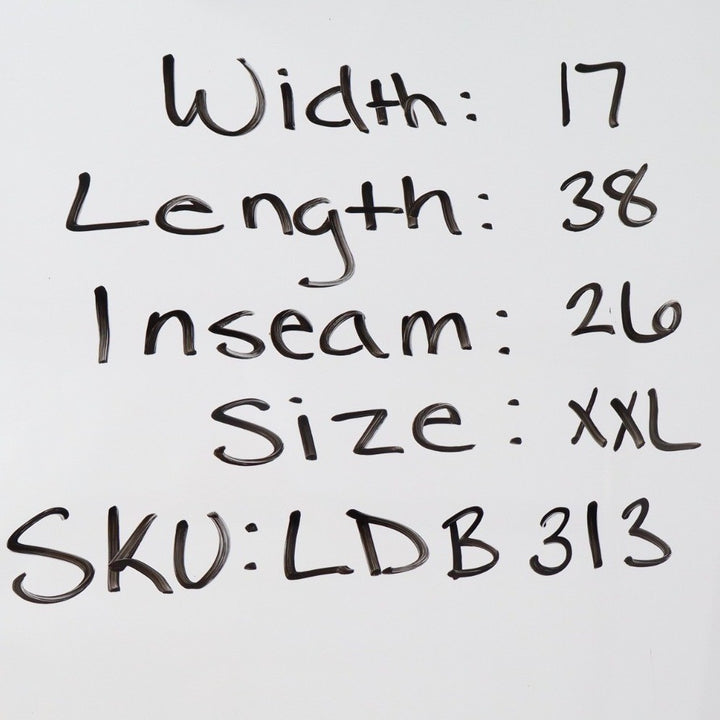 Width: 17
Length: 38
Inseam: 26
Size: XXL
SKU: LDB 313